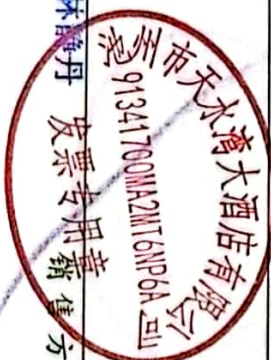 池州市天水湾大酒店有限公司
91341700MA2MT6NP6A
发票专用章
销售方